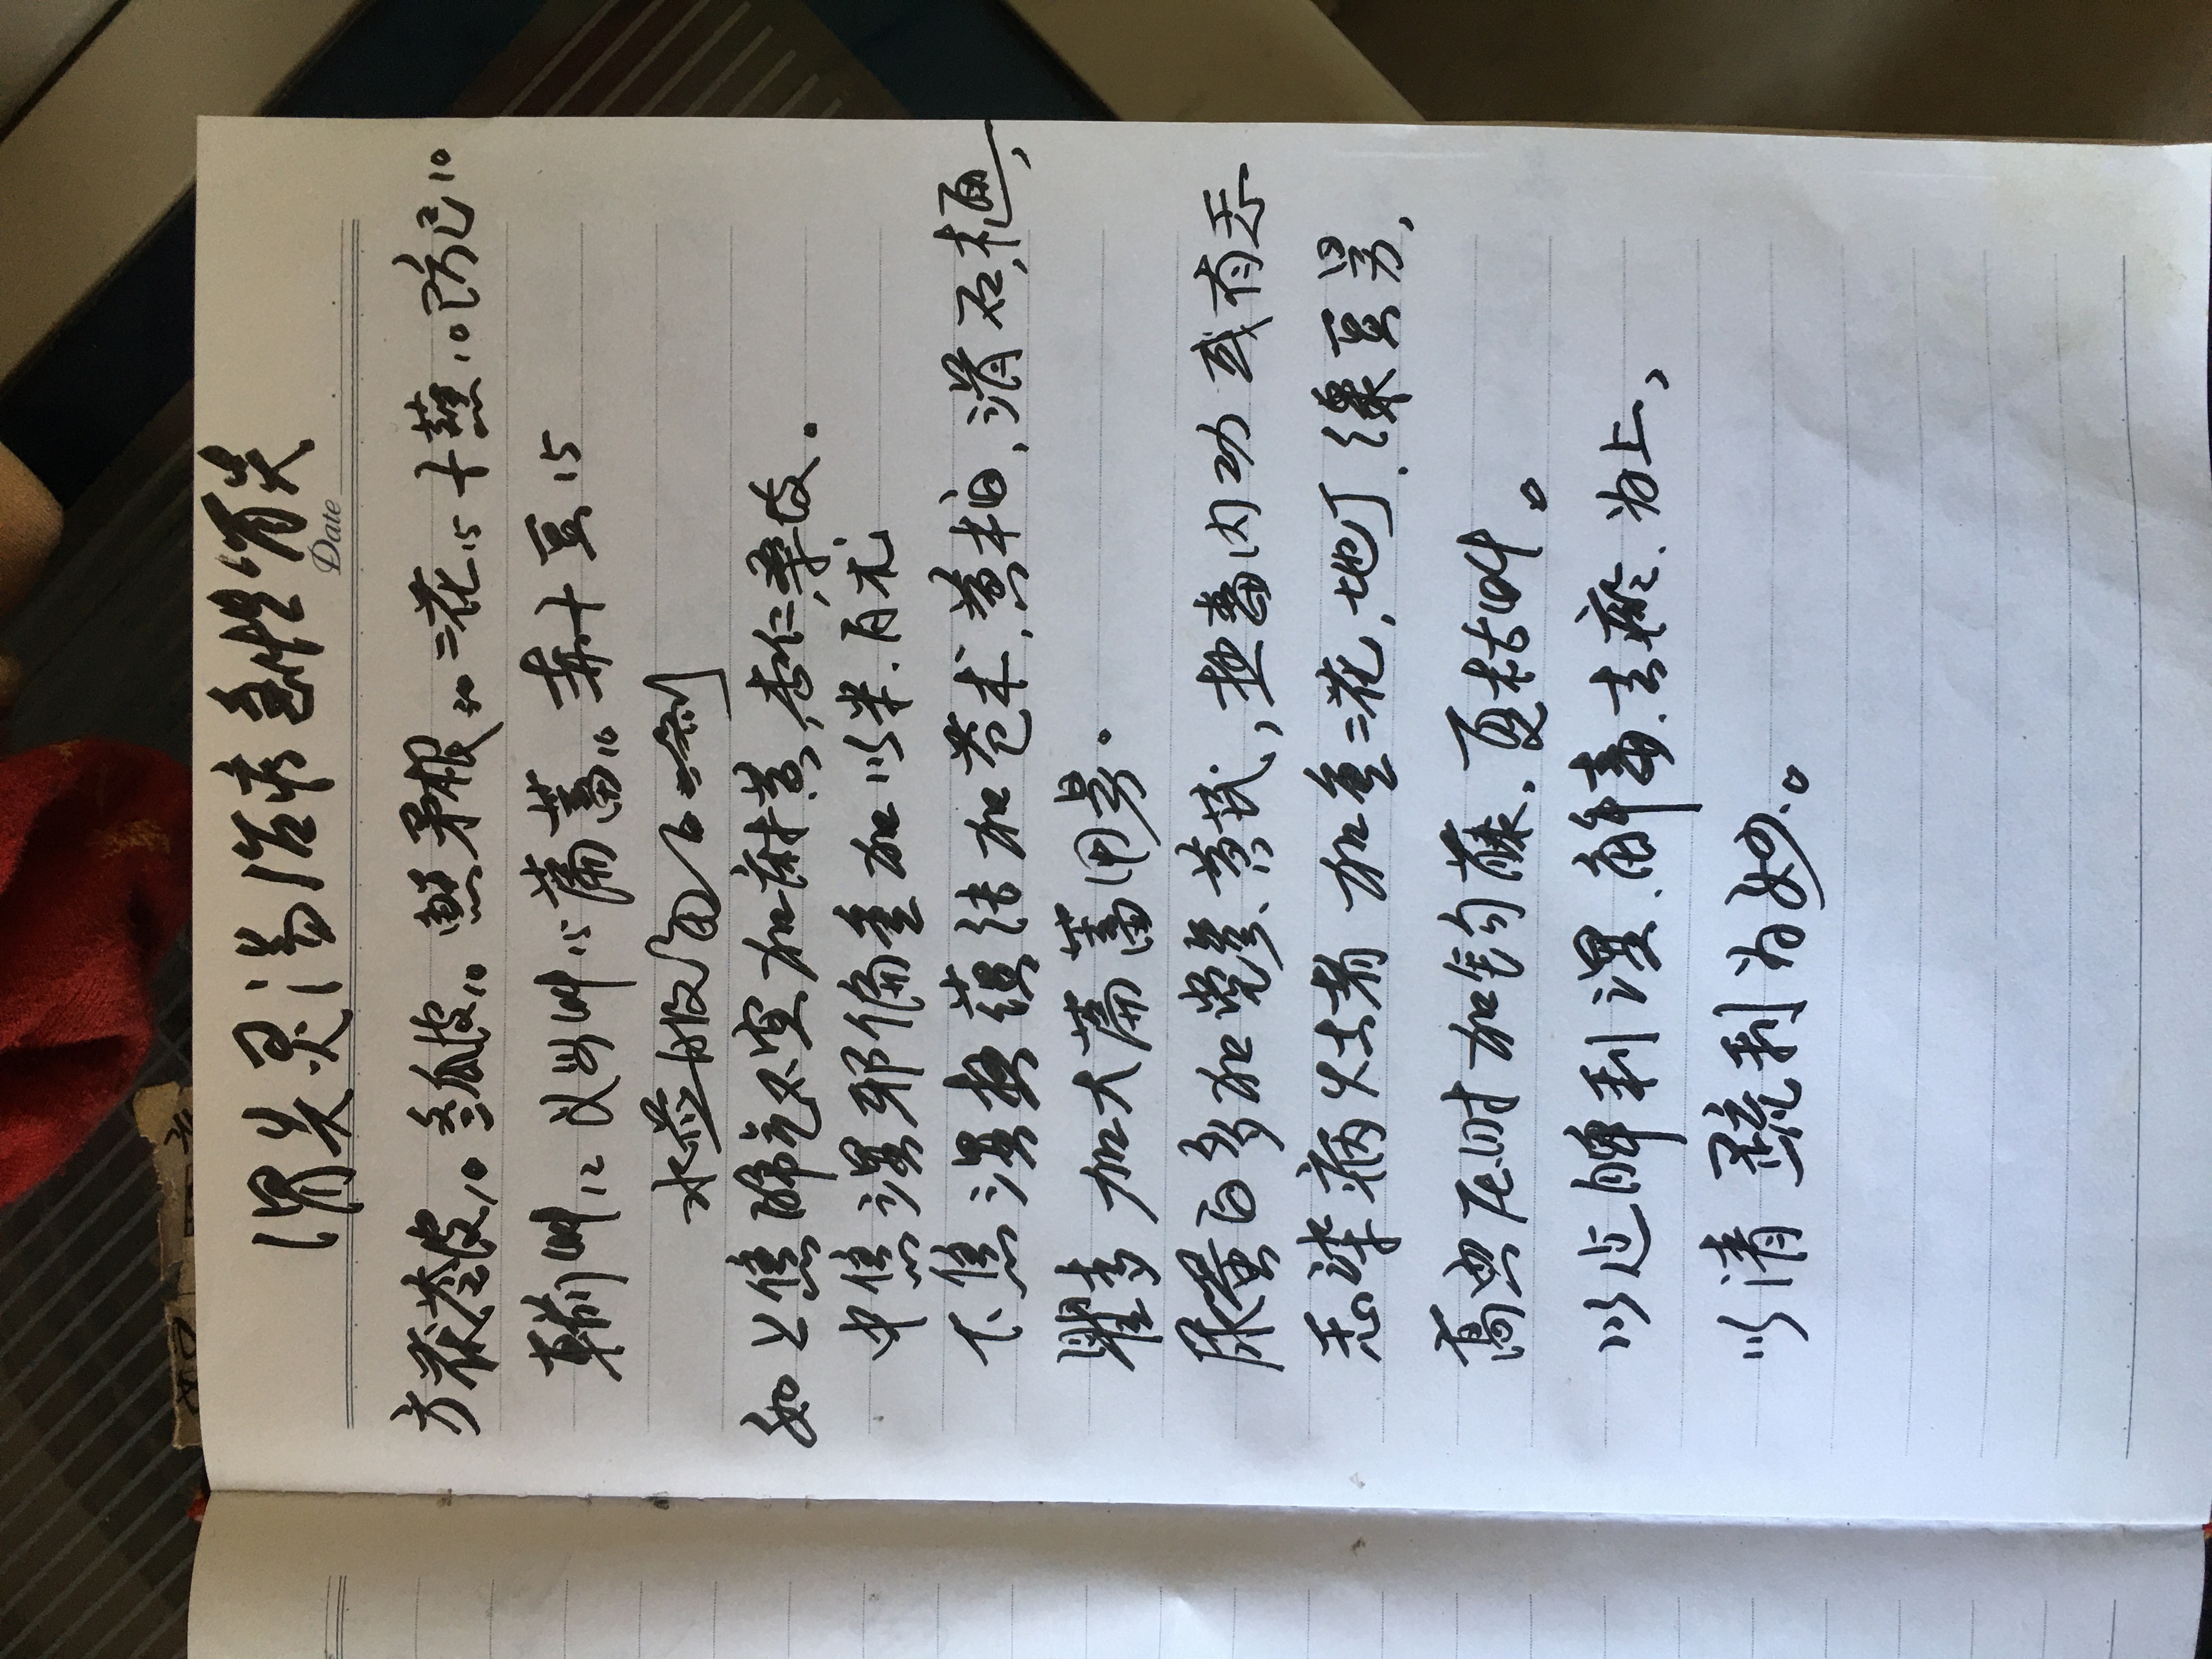 灵汤治疗急性肾炎
Date
方茯苓皮10 冬瓜皮10 茅根30 二花15 十 10 防己10
车前艸12 艸15 萹蓄10 赤十豆15
水煎服 剂
如上焦肺气不宣加麻黄,杏仁,桑皮。
中焦湿邪偏重加以米.白术
下焦湿热蕴结加苍术,黄柏,滑石,
瞿麦 加大萹蓄用量。
尿蛋白多加党参、黄芪,热毒内功 或有
染病灶者 加金二花,地丁.绿豆
高血压时加钩藤.夏枯艸。
以 脾利湿.解毒.去瘀.为上,
以清灵疏利为妙。